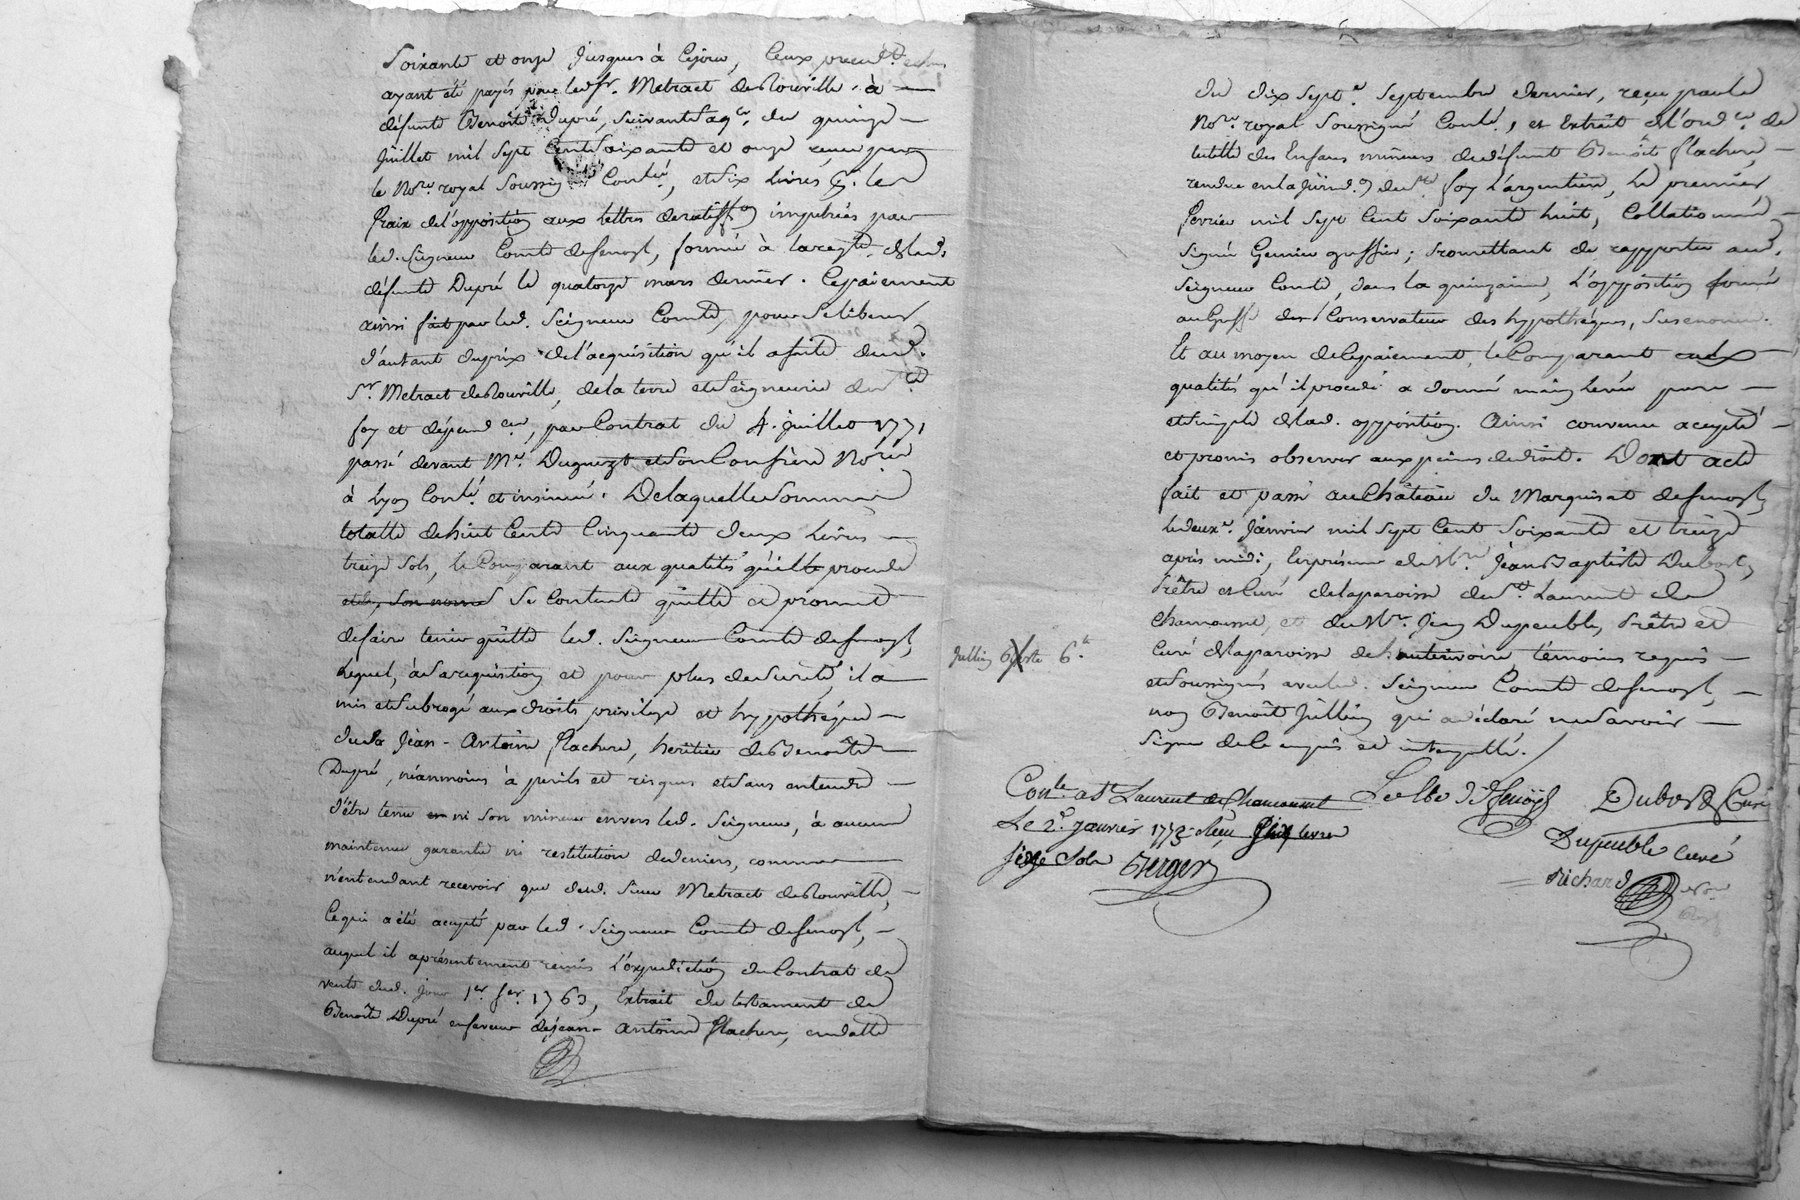 Soixante et onze jusques à ce jour, Ceux precedts echus
ayant été payés pour led. sr. Metract de Rouville à
défunte Benoite Dupré, suivant sa qce. du quinze
juillet mil sept Cent Soixante et onze recue par
le Nore. royal Soussigné Contlé, et Six livres pr. les
fraix de l'opposition aux lettres de ratiffon impetrées par
led. Seigneur Comte de fenoyl, formée à la reqte. de lad.
défunte Dupré le quatorze mars dernier. Ce paiement
ainsi fait par led. Seigneur Comte, pour se liberer
d'autant du prix de l'acquisition qu'il a faite dud.
Sr. Metract de Rouville, de la terre et Seigneurie de Ste.
foy et dépendces, par Contrat du 4. juillet 1771
passé devant Me. et Son Confrère Nores
à Lyon Contlé et insinué. De laquelle Somme
totalle de huit Cents Cinquante deux livres
treize Sols, le Comparant aux qualités qu'il procede
Se Contente quitte et promet
de faire tenir quitte led. Seigneur Comte de fenoyl,
lequel, à sa requisition et pour plus de Sureté, il a
mis et Subrogé aux droits privilege et hypothéque
dud. Jean-Antoine flachere, heritier de Benoite
Dupré, néanmoins à perils et risques et Sans entendre
d'être tenu ni Son mineur envers led. Seigneur, à aucune
maintenue garantie ni restitution de deniers, comme
n'entendant recevoir que dud. Sieur Metract de Rouville,
Ce qui a été accepté par led. Seigneur Comte de fenoyl,
auquel il a présentement remis l'expedition du Contrat de
vente dud. jour 1er. fer. 1763, Extrait du testament de
Benoite Dupré en faveur de Jean-Antoine flachere, en datte
du dix Septe. Septembre dernier, reçu par le
Nore. royal Soussigné Contlé, et Extrait de l'ordce. de
tutelle des Enfans mineurs de défunt Benoît flachere,
rendue en la Juridon de Ste foy l'argentiere, le premier
fevrier mil Sept Cent Soixante huit, Collationné
Signé greffier; promettant de rapporter aud.
Seigneur Comte, dans la quinzaine, l'opposition formée
au Greffe des Conservateur des hypothéques, Sus enoncée.
Et au moyen de Ce paiement, le Comparant aux
qualités qu'il procede a donné main levée pure
et Simple de lad. opposition. Ainsi convenu accepté
et promis observer aux peines de droit. Dont acte
fait et passé au Château du Marquisat de fenoyl,
le deuxe. Janvier mil Sept Cent Soixante et treize
après midi, En présence de Mre. Jean Baptiste Dubost,
Prêtre et Curé de la paroisse de St. Laurent de
Chamousset, et de Mre. Jean Dupeuble, Prêtre et
Curé de la paroisse de hauterivoire, témoins requis
et Soussignés avec led. Seigneur Comte de fenoyl,
non Benoît Jullien qui a déclaré ne Savoir
Signer de Ce enquis et interpellé.
Conle. a St Laurent de Chamousset
Le 2e. janvier 1773. Recu livres
Sols Berger
Dubost Curé
Dupeuble curé
Richard